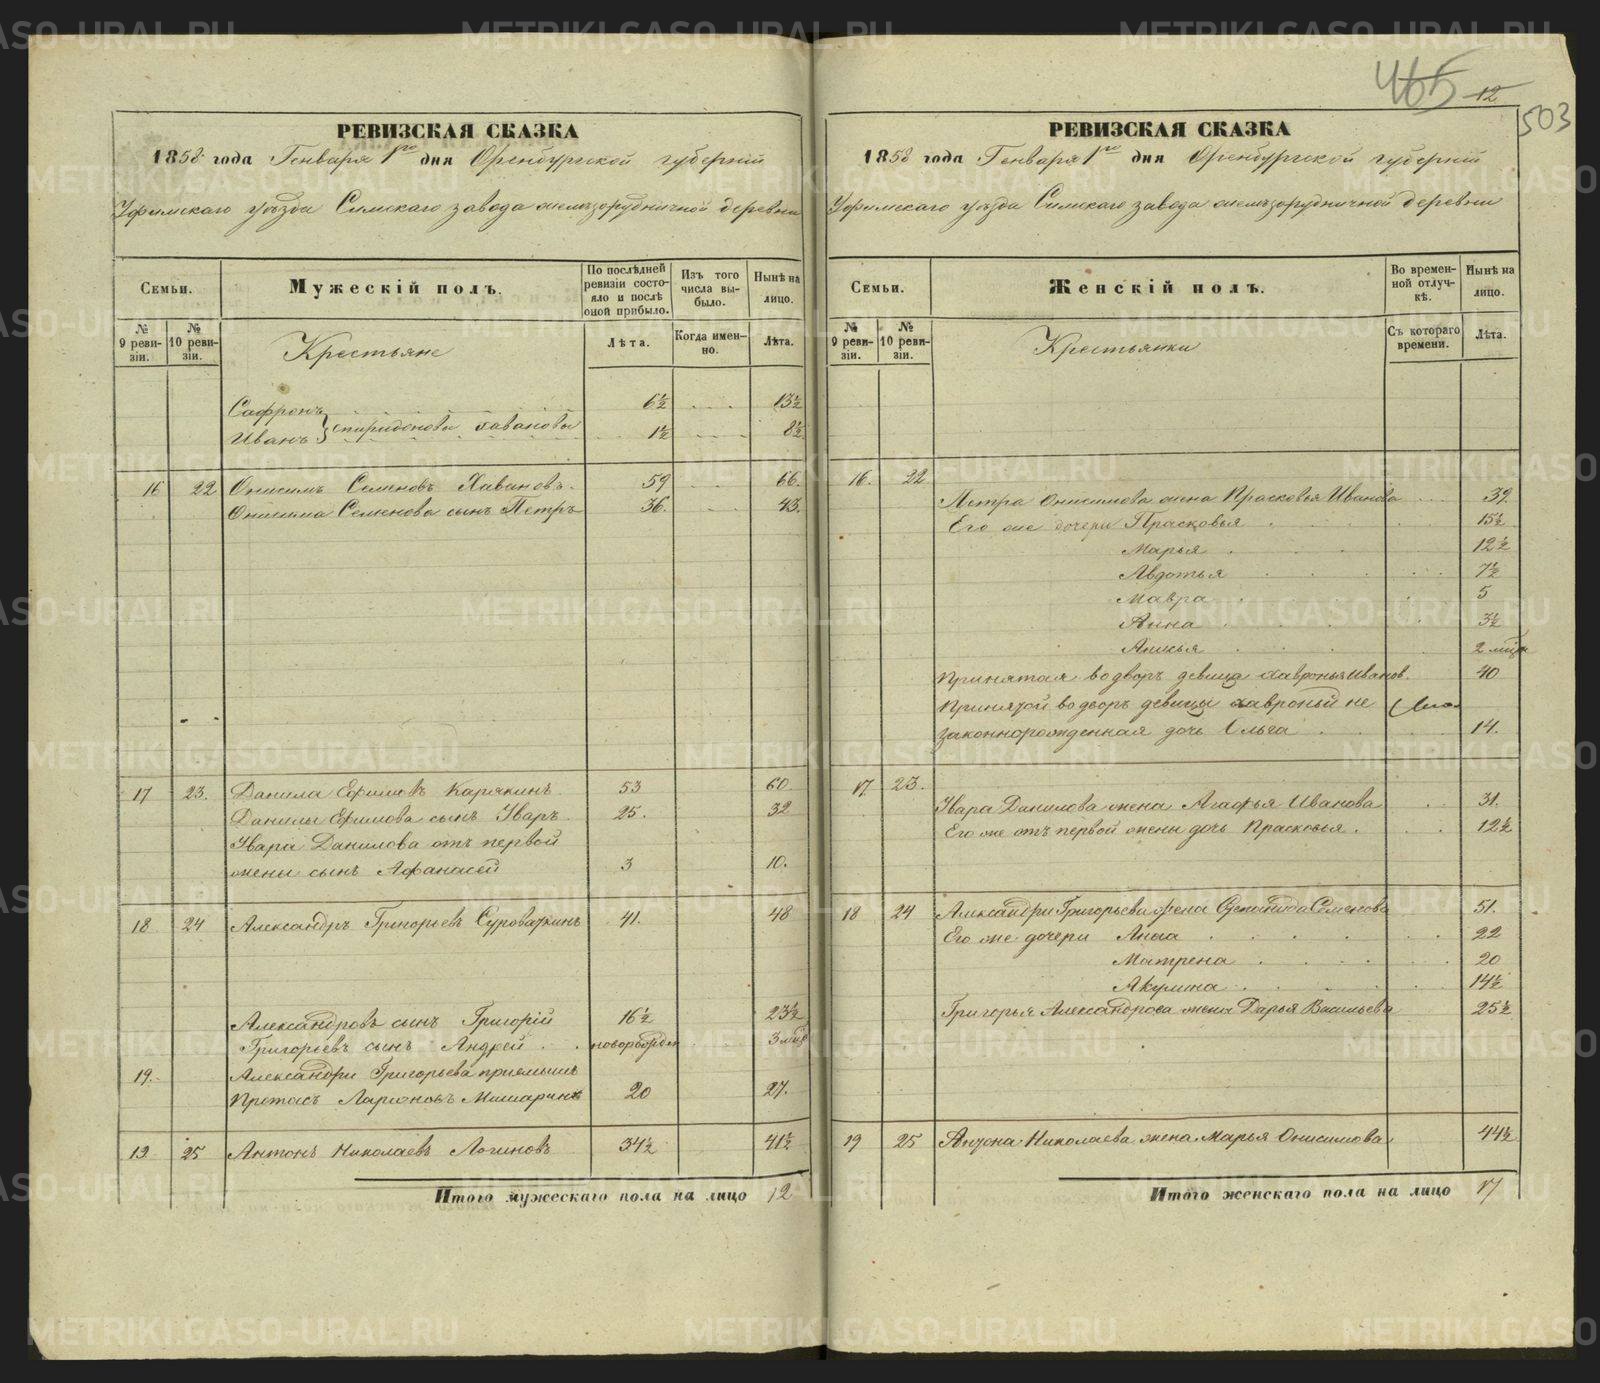 465 12
503
РЕВИЗСКАЯ СКАЗКА
1858 года Генваря 1го дня Оренбургской губернiи
Уфимскаго уѣзда Симскаго завода железорудничной деревни
Семьи.
Мужескiй полъ.
По послѣдней ревизiи состояло и послѣ оной прибыло.
Изъ того числа выбыло.
Нынѣ на лицо.
№ 9 ревизiи.
№ 10 ревизiи.
Крестьяне
Лѣта.
Когда именно.
Лѣта.
Сафронъ 6½ 13½
Иванъ } Спиридонова Хаванова 1½ 8½
16 22 Онисимъ Семеновъ Хавановъ 59 66.
Онисима Семенова сынъ Петръ 36. 43.
17 23. Данила Ефимовъ Карякинъ 53 60
Данилы Ефимова сынъ Уваръ 25. 32
Увара Данилова отъ первой
жены сынъ Афанасей 3 10.
18 24 Александръ Григорьевъ Суровяткинъ 41. 48
Александровъ сынъ Григорiй 16½ 23½
Григорьевъ сынъ Андрей новорожден 3 мѣс
19. Александры Григорьева прiемышъ
Протасъ Ларiоновъ Мишаринъ 20 27.
19 25 Антонъ Николаевъ Логиновъ 34½ 41½
Итого мужескаго пола на лицо 12
РЕВИЗСКАЯ СКАЗКА
1858 года Генваря 1го дня Оренбургской губернiи
Уфимскаго уѣзда Симскаго завода железорудничной деревни
Семьи.
Женскiй полъ.
Во временной отлучкѣ.
Нынѣ на лицо.
№ 9 ревизiи.
№ 10 ревизiи.
Крестьянки
Съ котораго времени.
Лѣта.
16. 22
Петра Онисимова жена Прасковья Иванова 39.
Его же дочери Прасковья 15½
Марья 12½
Авдотья 7½
Мавра 5
Анна 3½
2 мѣс
Принятая во дворъ девица Хавронья Иванов. 40
Принятой во дворъ девицы Хавроньи не
законнорожденная дочь Ольга 14.
17. 23.
Увара Данилова жена Агафья Иванова 31.
Его же отъ первой жены дочь Прасковья. 12½
18 24 Александры Григорьева жена Степанида Семенова 51.
Его же дочери Анна 22
Матрена 20
Акулина 14½
Григорья Александрова жена Дарья Васильева 25½
19 25 Антона Николаева жена Марья Онисимова 44½
Итого женскаго пола на лицо 17
METRIKI.GASO-URAL.RU